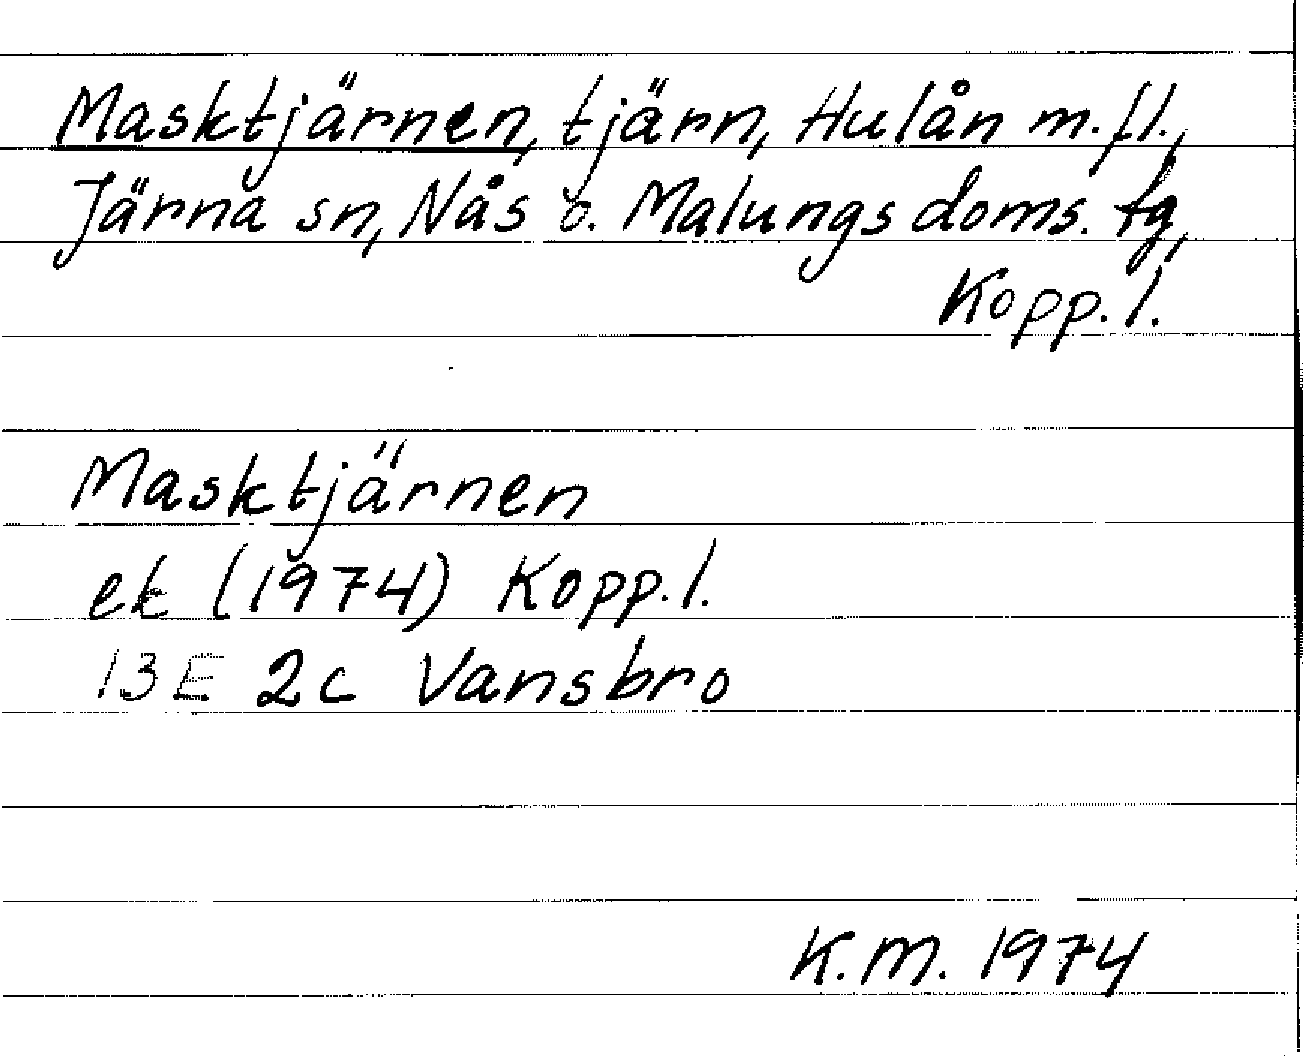 Masktjärnen, tjärn, Hulån m.fl.,
Järna sn, Nås o. Malungs doms. tg,
Kopp. l.
Masktjärnen
ek (1974) Kopp. l.
13E 2c Vansbro
K.M. 1974